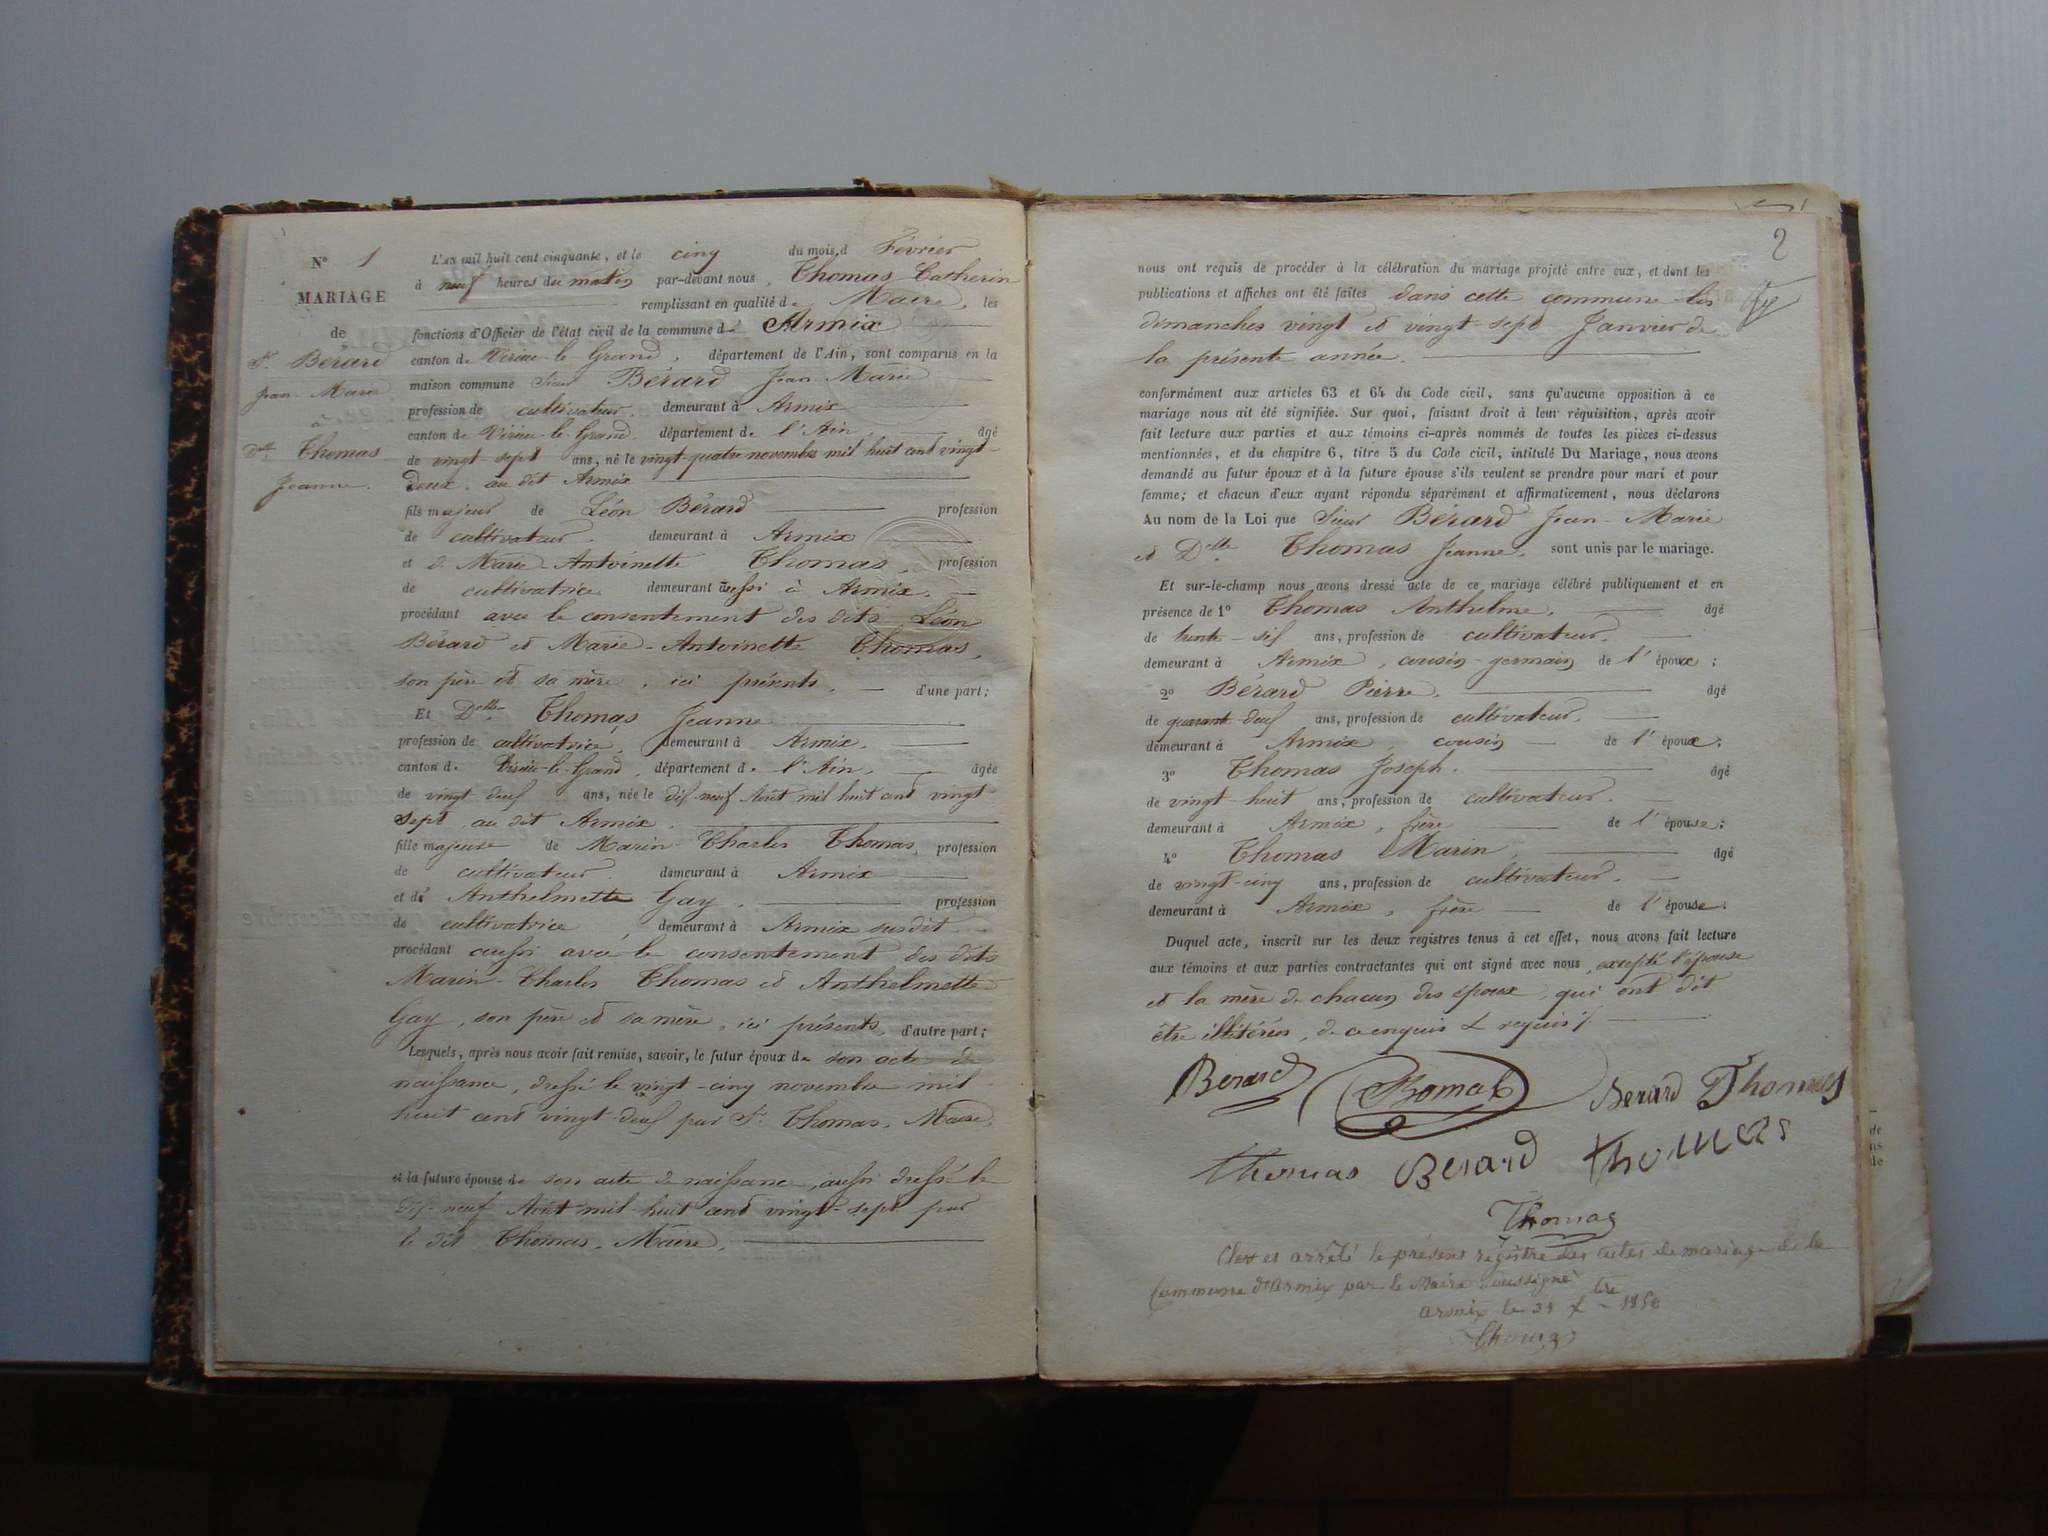 N° 1
MARIAGE
de
Sr. Bérard
Jean-Marie
à
Delle Thomas
Jeanne.
L'AN mil huit cent cinquante, et le cinq du mois d Février
à neuf heures du matin par-devant nous, Thomas Catherin
remplissant en qualité de Maire, les
fonctions d'Officier de l'état civil de la commune d' Armix
canton de Virieu-le-Grand, département de l'Ain, sont comparus en la
maison commune Sieur Bérard Jean-Marie
profession de cultivateur. demeurant à Armix
canton de Virieu-le-Grand. département de l'Ain, âgé
de vingt-sept ans, né le vingt-quatre novembre mil huit cent vingt-
deux. au dit Armix
fils majeur de Léon Bérard profession
de cultivateur. demeurant à Armix
et d. Marie-Antoinette Thomas, profession
de cultivatrice demeurant aussi à Armix.
procédant avec le consentement des dits Léon
Bérard et Marie-Antoinette Thomas,
son père et sa mère, ici présents. d'une part;
Et Delle Thomas Jeanne
profession de cultivatrice, demeurant à Armix.
canton de Virieu-le-Grand, département de l'Ain, âgée
de vingt-deux ans, née le dix-neuf Août mil huit cent vingt
sept, au dit Armix.
fille majeure de Marin-Charles Thomas, profession
de cultivateur. demeurant à Armix
et de Anthelmette Gay. profession
de cultivatrice, demeurant à Armix susdit
procédant aussi avec le consentement des dits
Marin-Charles Thomas et Anthelmette
Gay, son père et sa mère, ici présents, d'autre part;
Lesquels, après nous avoir fait remise, savoir, le futur époux de son acte de
naissance, dressé le vingt-cinq novembre mil
huit cent vingt-deux par Sr. Thomas, Maire,
et la future épouse de son acte de naissance, aussi dressé le
dix-neuf Août mil huit cent vingt-sept par
le dit Thomas, Maire.
2
nous ont requis de procéder à la célébration du mariage projeté entre eux, et dont les
publications et affiches ont été faites dans cette commune les
dimanches vingt et vingt-sept Janvier de
la présente année.
conformément aux articles 63 et 64 du Code civil, sans qu'aucune opposition à ce
mariage nous ait été signifiée. Sur quoi, faisant droit à leur réquisition, après avoir
fait lecture aux parties et aux témoins ci-après nommés de toutes les pièces ci-dessus
mentionnées, et du chapitre 6, titre 5 du Code civil, intitulé Du Mariage, nous avons
demandé au futur époux et à la future épouse s'ils veulent se prendre pour mari et pour
femme; et chacun d'eux ayant répondu séparément et affirmativement, nous déclarons
Au nom de la Loi que Sieur Bérard Jean-Marie
et Delle Thomas Jeanne, sont unis par le mariage.
Et sur-le-champ nous avons dressé acte de ce mariage célébré publiquement et en
présence de 1° Thomas Anthelme, âgé
de trente-six ans, profession de cultivateur,
demeurant à Armix, cousin-germain de l'époux;
2° Bérard Pierre. âgé
de quarant-deux ans, profession de cultivateur.
demeurant à Armix, cousin de l'époux;
3° Thomas Joseph. âgé
de vingt-huit ans, profession de cultivateur.
demeurant à Armix, frère de l'épouse;
4° Thomas Marin, âgé
de vingt-cinq ans, profession de cultivateur.
demeurant à Armix, frère de l'épouse.
Duquel acte, inscrit sur les deux registres tenus à cet effet, nous avons fait lecture
aux témoins et aux parties contractantes qui ont signé avec nous, excepté l'épouse
et la mère de chacun des époux, qui ont dit
être illitérés, de ce enquis & requis
Berard Thomas Berard Thomas
Thomas Berard Thomas
Thomas
Clos et arrêté le présent régistre des actes de mariage de la
Commune d'Armix par le Maire soussigné
armix le 31 Xbre 1850
Thomas